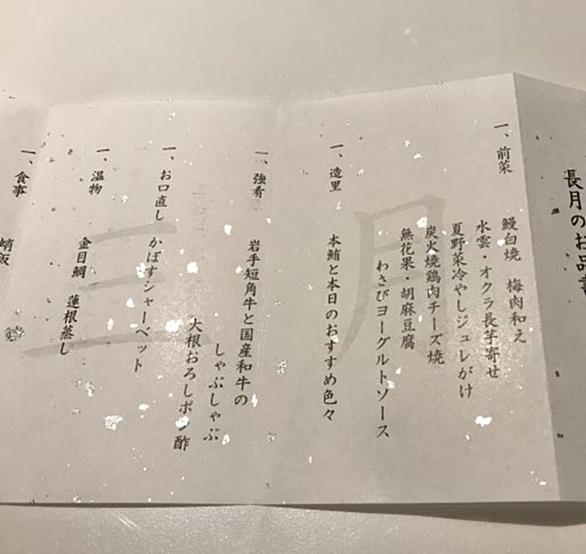 長月のお品書
一、前菜
鰻白焼　梅肉和え
水雲・オクラ長芋寄せ
夏野菜冷やしジュレがけ
炭火焼鶏肉チーズ焼
無花果・胡麻豆腐
わさびヨーグルトソース
一、造里
本鮪と本日のおすすめ色々
一、強肴
岩手短角牛と国産和牛の
しゃぶしゃぶ
大根おろしポン酢
一、お口直し
かぼすシャーベット
一、温物
金目鯛　蓮根蒸し
一、食事
蛸飯
月
三